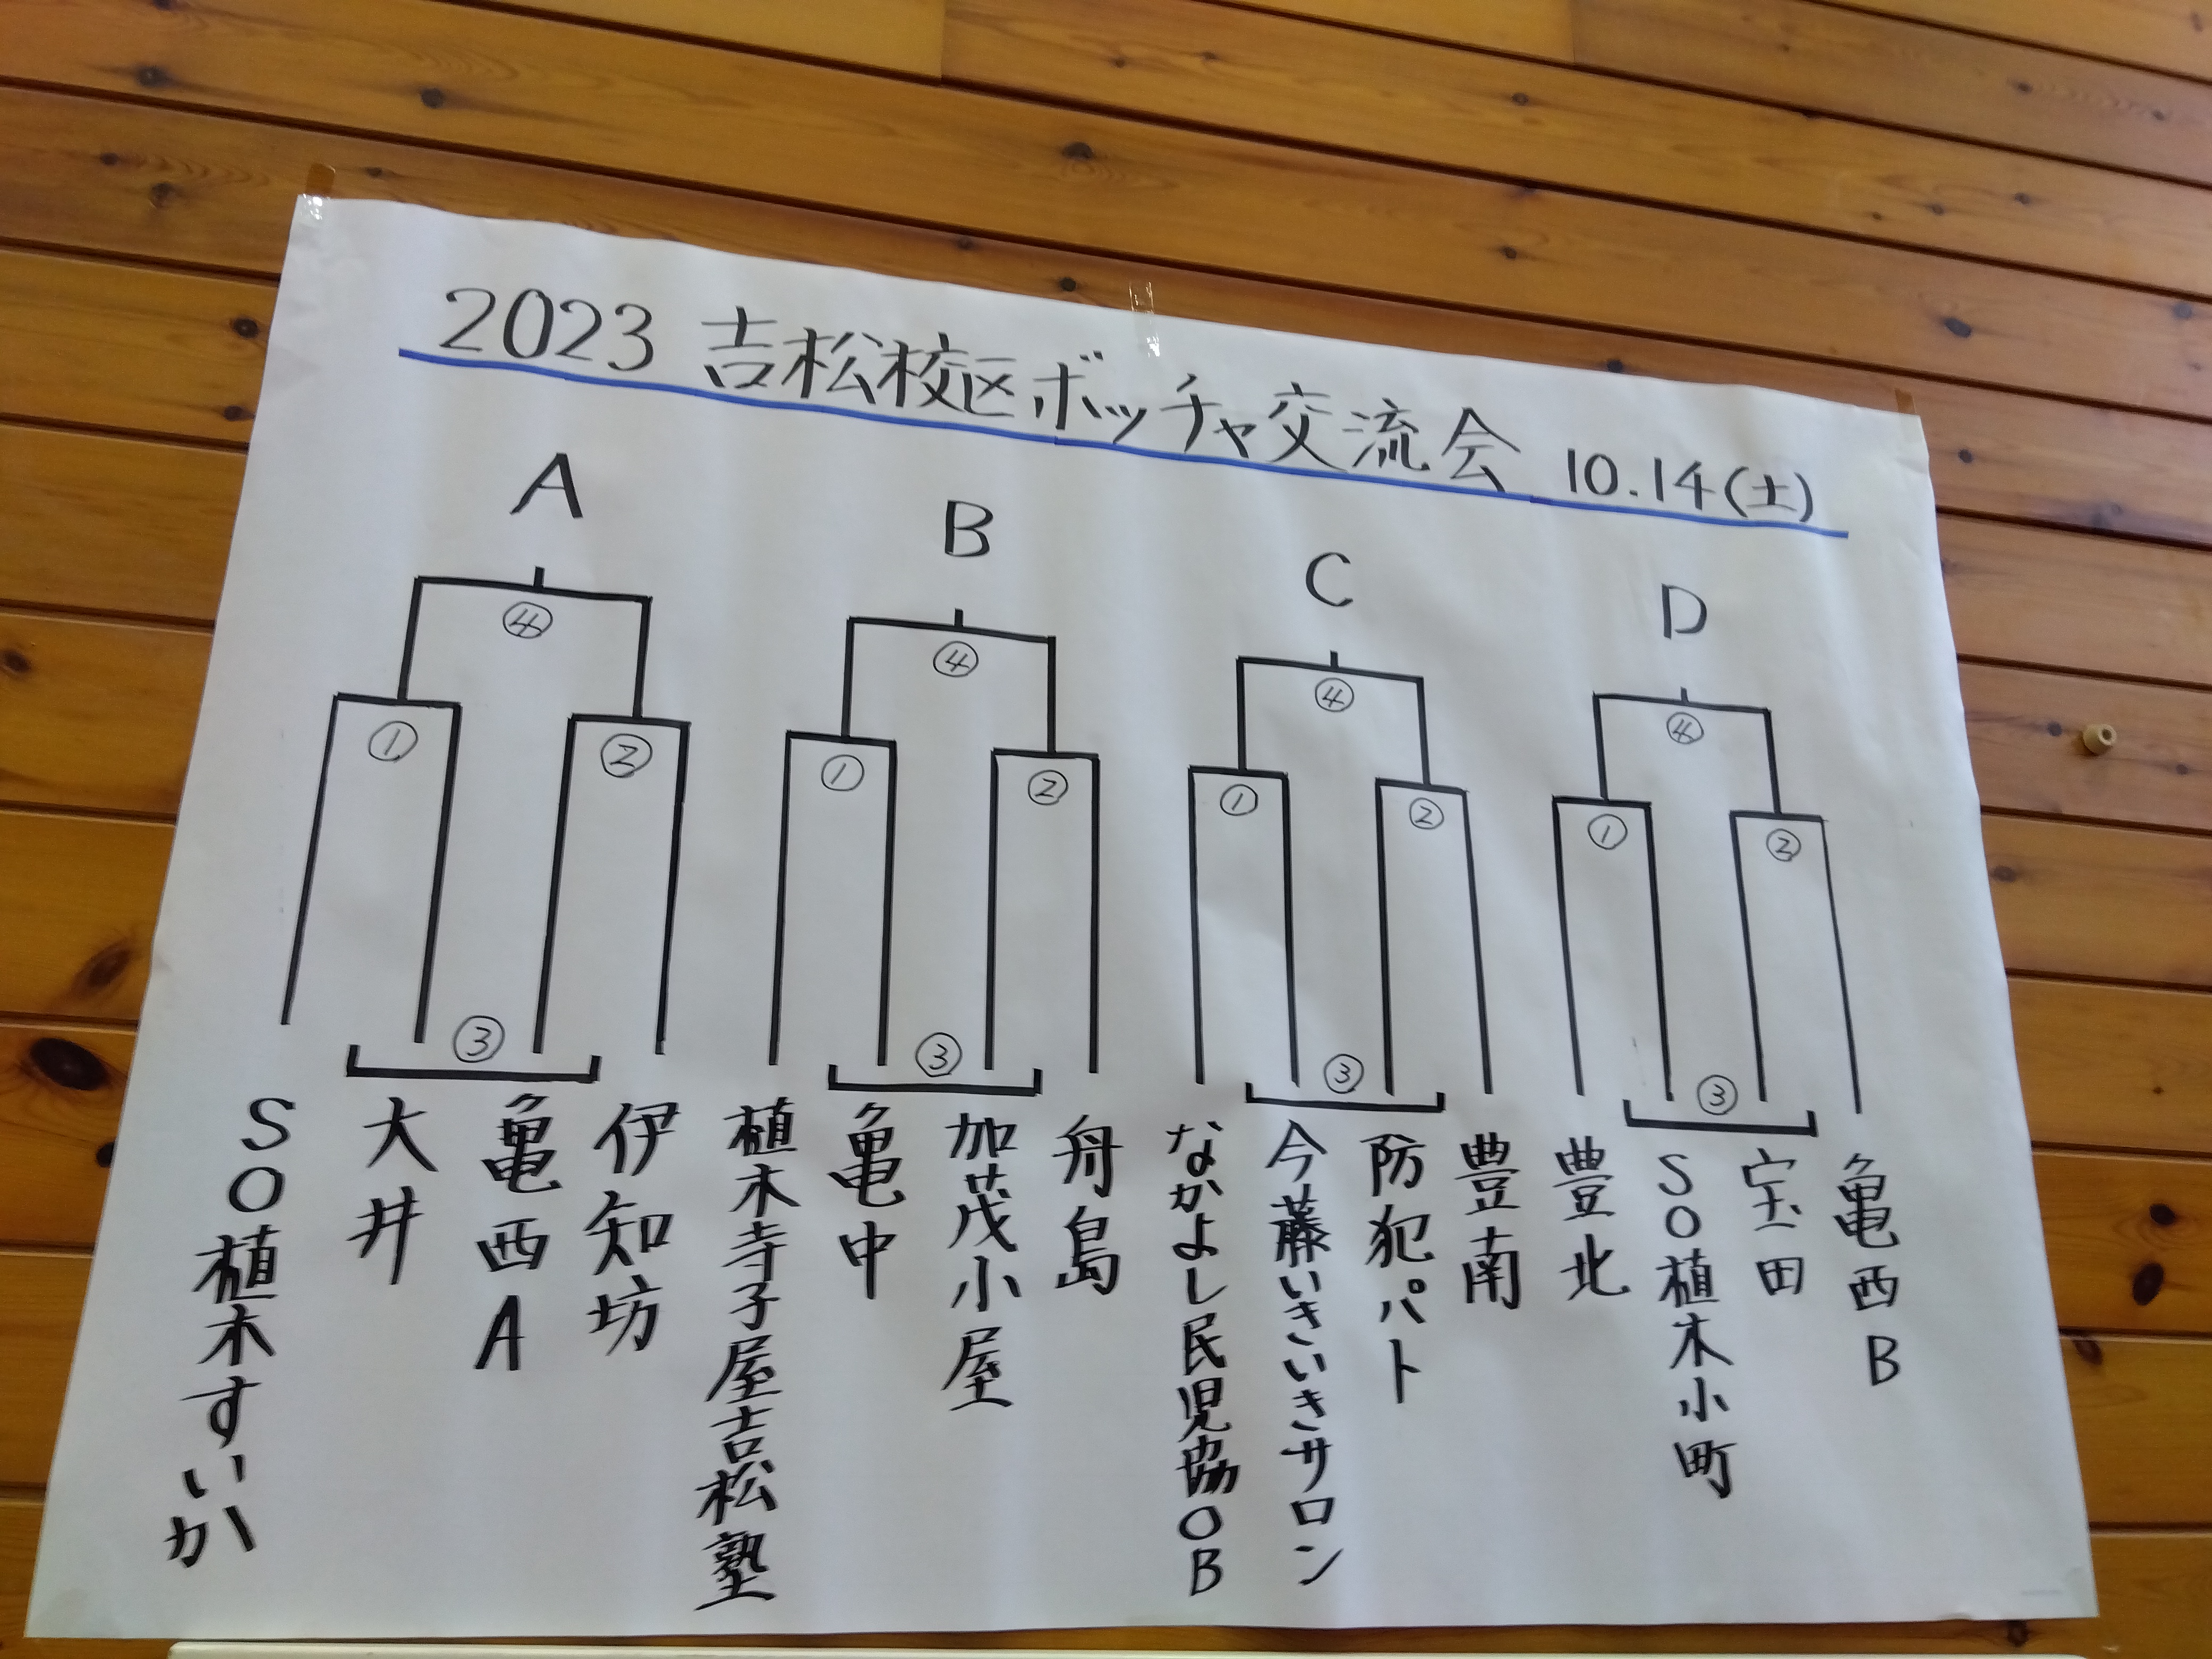 2023 吉松校区ボッチャ交流会 10.14(土)
A
B
C
D
④
④
④
④
①
②
①
②
①
②
①
②
③
③
③
③
SO植木すいか
大井
亀西A
伊知坊
植木寺子屋吉松塾
亀中
加茂小屋
舟島
なかよし民児協OB
今藤いきいきサロン
防犯パト
豊南
豊北
SO植木小町
宝田
亀西B